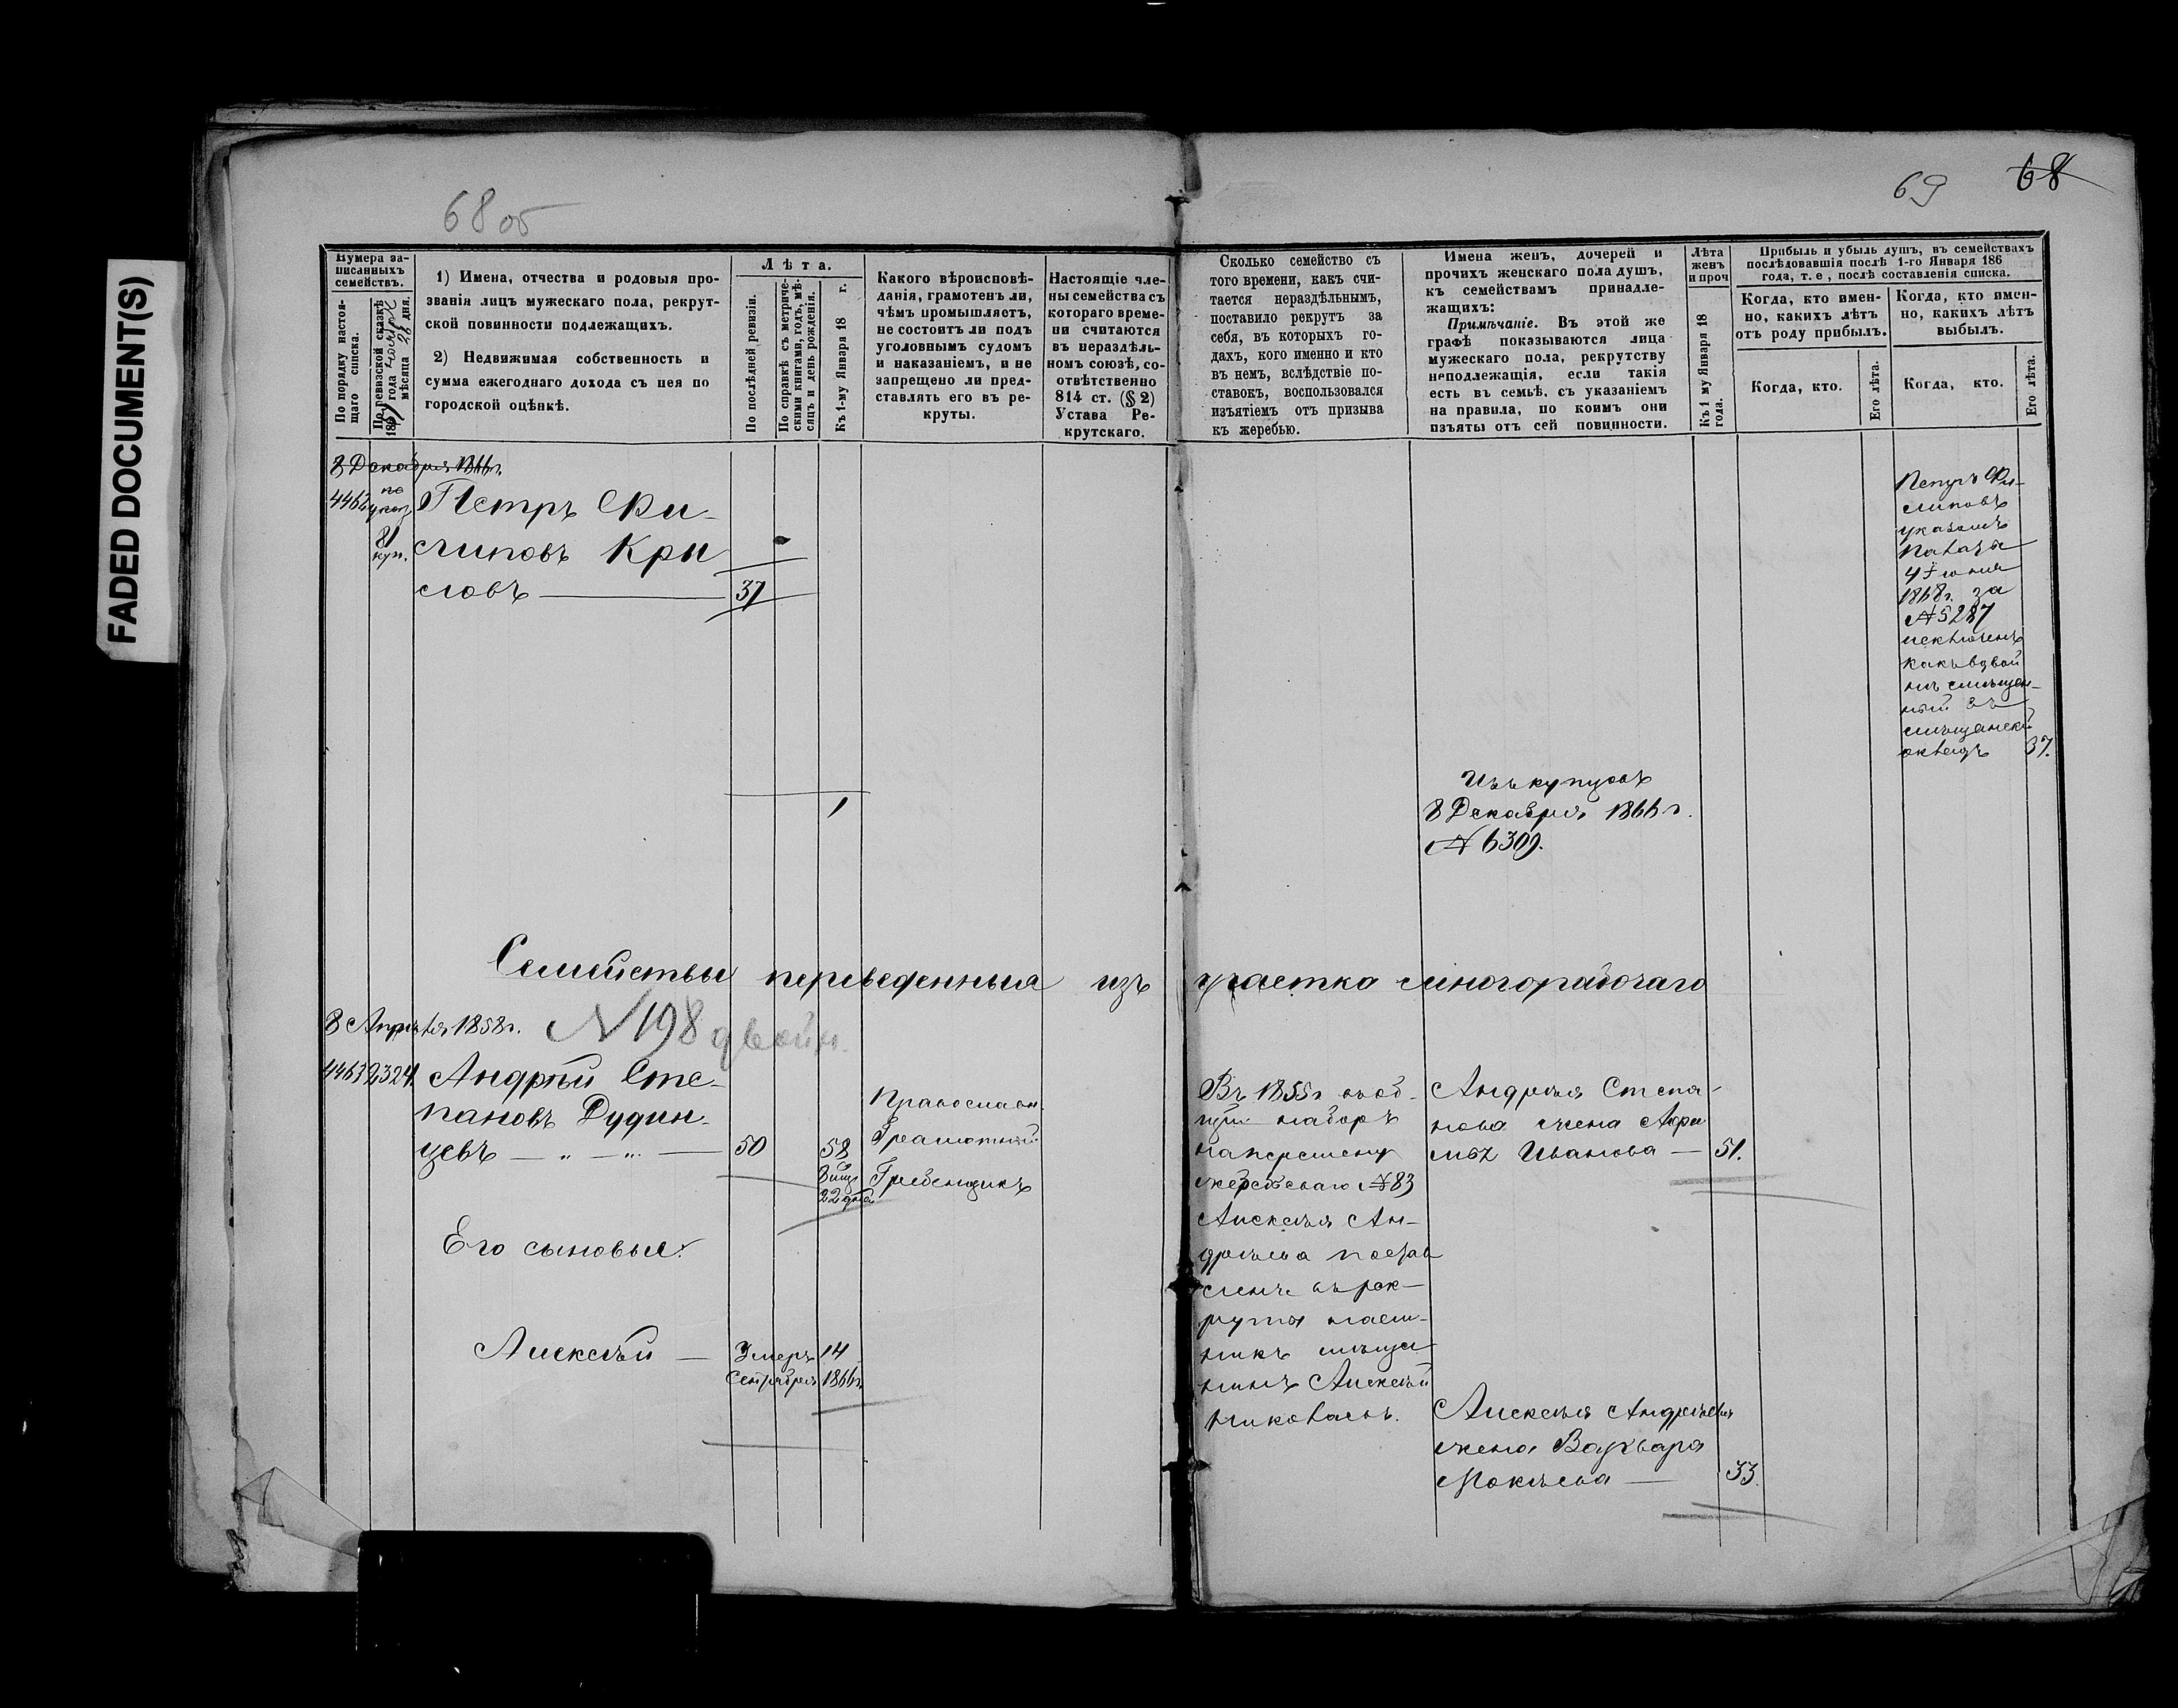 FADED DOCUMENT(S)
68 об
69 68
Нумера записанныхъ семействъ.
По порядку настоящаго списка.
По ревизской сказкѣ
186 года
мѣсяца 28 дня.
1) Имена, отчества и родовыя прозванія лицъ мужескаго пола, рекрутской повинности подлежащихъ.
2) Недвижимая собственность и сумма ежегоднаго дохода съ нея по городской оцѣнкѣ.
Лѣта.
По послѣдней ревизіи.
По справкѣ съ метрическими книгами, годъ, мѣсяцъ и день рожденія.
Къ 1-му Января 18 г.
Какого вѣроисповѣданія, грамотенъ ли, чѣмъ промышляетъ, не состоитъ ли подъ уголовнымъ судомъ и наказаніемъ, и не запрещено ли представлять его въ рекруты.
Настоящіе члены семейства съ котораго времени считаются въ нераздѣльномъ союзѣ, соотвѣтственно 814 ст. (§ 2) Устава Рекрутскаго.
Сколько семейство съ того времени, какъ считается нераздѣльнымъ, поставило рекрутъ за себя, въ которыхъ годахъ, кого именно и кто въ немъ, вслѣдствіе поставокъ, воспользовался изъятіемъ отъ призыва къ жеребью.
Имена женъ, дочерей и прочихъ женскаго пола душъ, къ семействамъ принадлежащихъ:
Примѣчаніе. Въ этой же графѣ показываются лица мужескаго пола, рекрутству неподлежащія, если такія есть въ семьѣ, съ указаніемъ на правила, по коимъ они изъяты отъ сей повинности.
Лѣта женъ и проч
Къ 1 му Января 18 года.
Прибыль и убыль душъ, въ семействахъ послѣдовавшія послѣ 1-го Января 186 года, т. е, послѣ составленія списка.
Когда, кто именно, какихъ лѣтъ отъ роду прибылъ.
Когда, кто.
Его лѣта.
Когда, кто именно, какихъ лѣтъ выбылъ.
Когда, кто.
Его лѣта.
8 Декабря 1866 г.
4462 по указ
81 куп.
Петръ Фи-
липовъ Кры
ловъ — 37
1
Изъ купцовъ
8 Декабря 1866 г.
№ 6309.
Петръ Фи-
липовъ
указомъ
Палаты
4 Іюня
1868 г. за
№ 5287
исключенъ
какъ вдвой
нѣ
ный въ
мѣщанскій
окладъ 37.
Семействы переведенныя изъ участка многорабочаго
8 Апрѣля 1858 г. № 198 двойн.
4463 2324. Андрѣй Сте-
пановъ Дудин-
цевъ — „ — „ — 50 58
8 мѣц
22 дня
Православн.
Грамотный
Гребенщикъ
Его сыновья:
Алексѣй — Умеръ 14
Сентября 1866 г.
Въ 1855 г. въ об-
щій наборъ
на перемену
жеребьеваго № 83
Алексѣя Ан-
дрѣева постав
ленъ въ рек-
руты наем-
никъ мѣща
нинъ Алексѣй
Андрѣя Степа-
нова жена Афи
мья Иванова — 51.
Алексѣя Андрѣева
жена Варвара
Мокѣева — 33